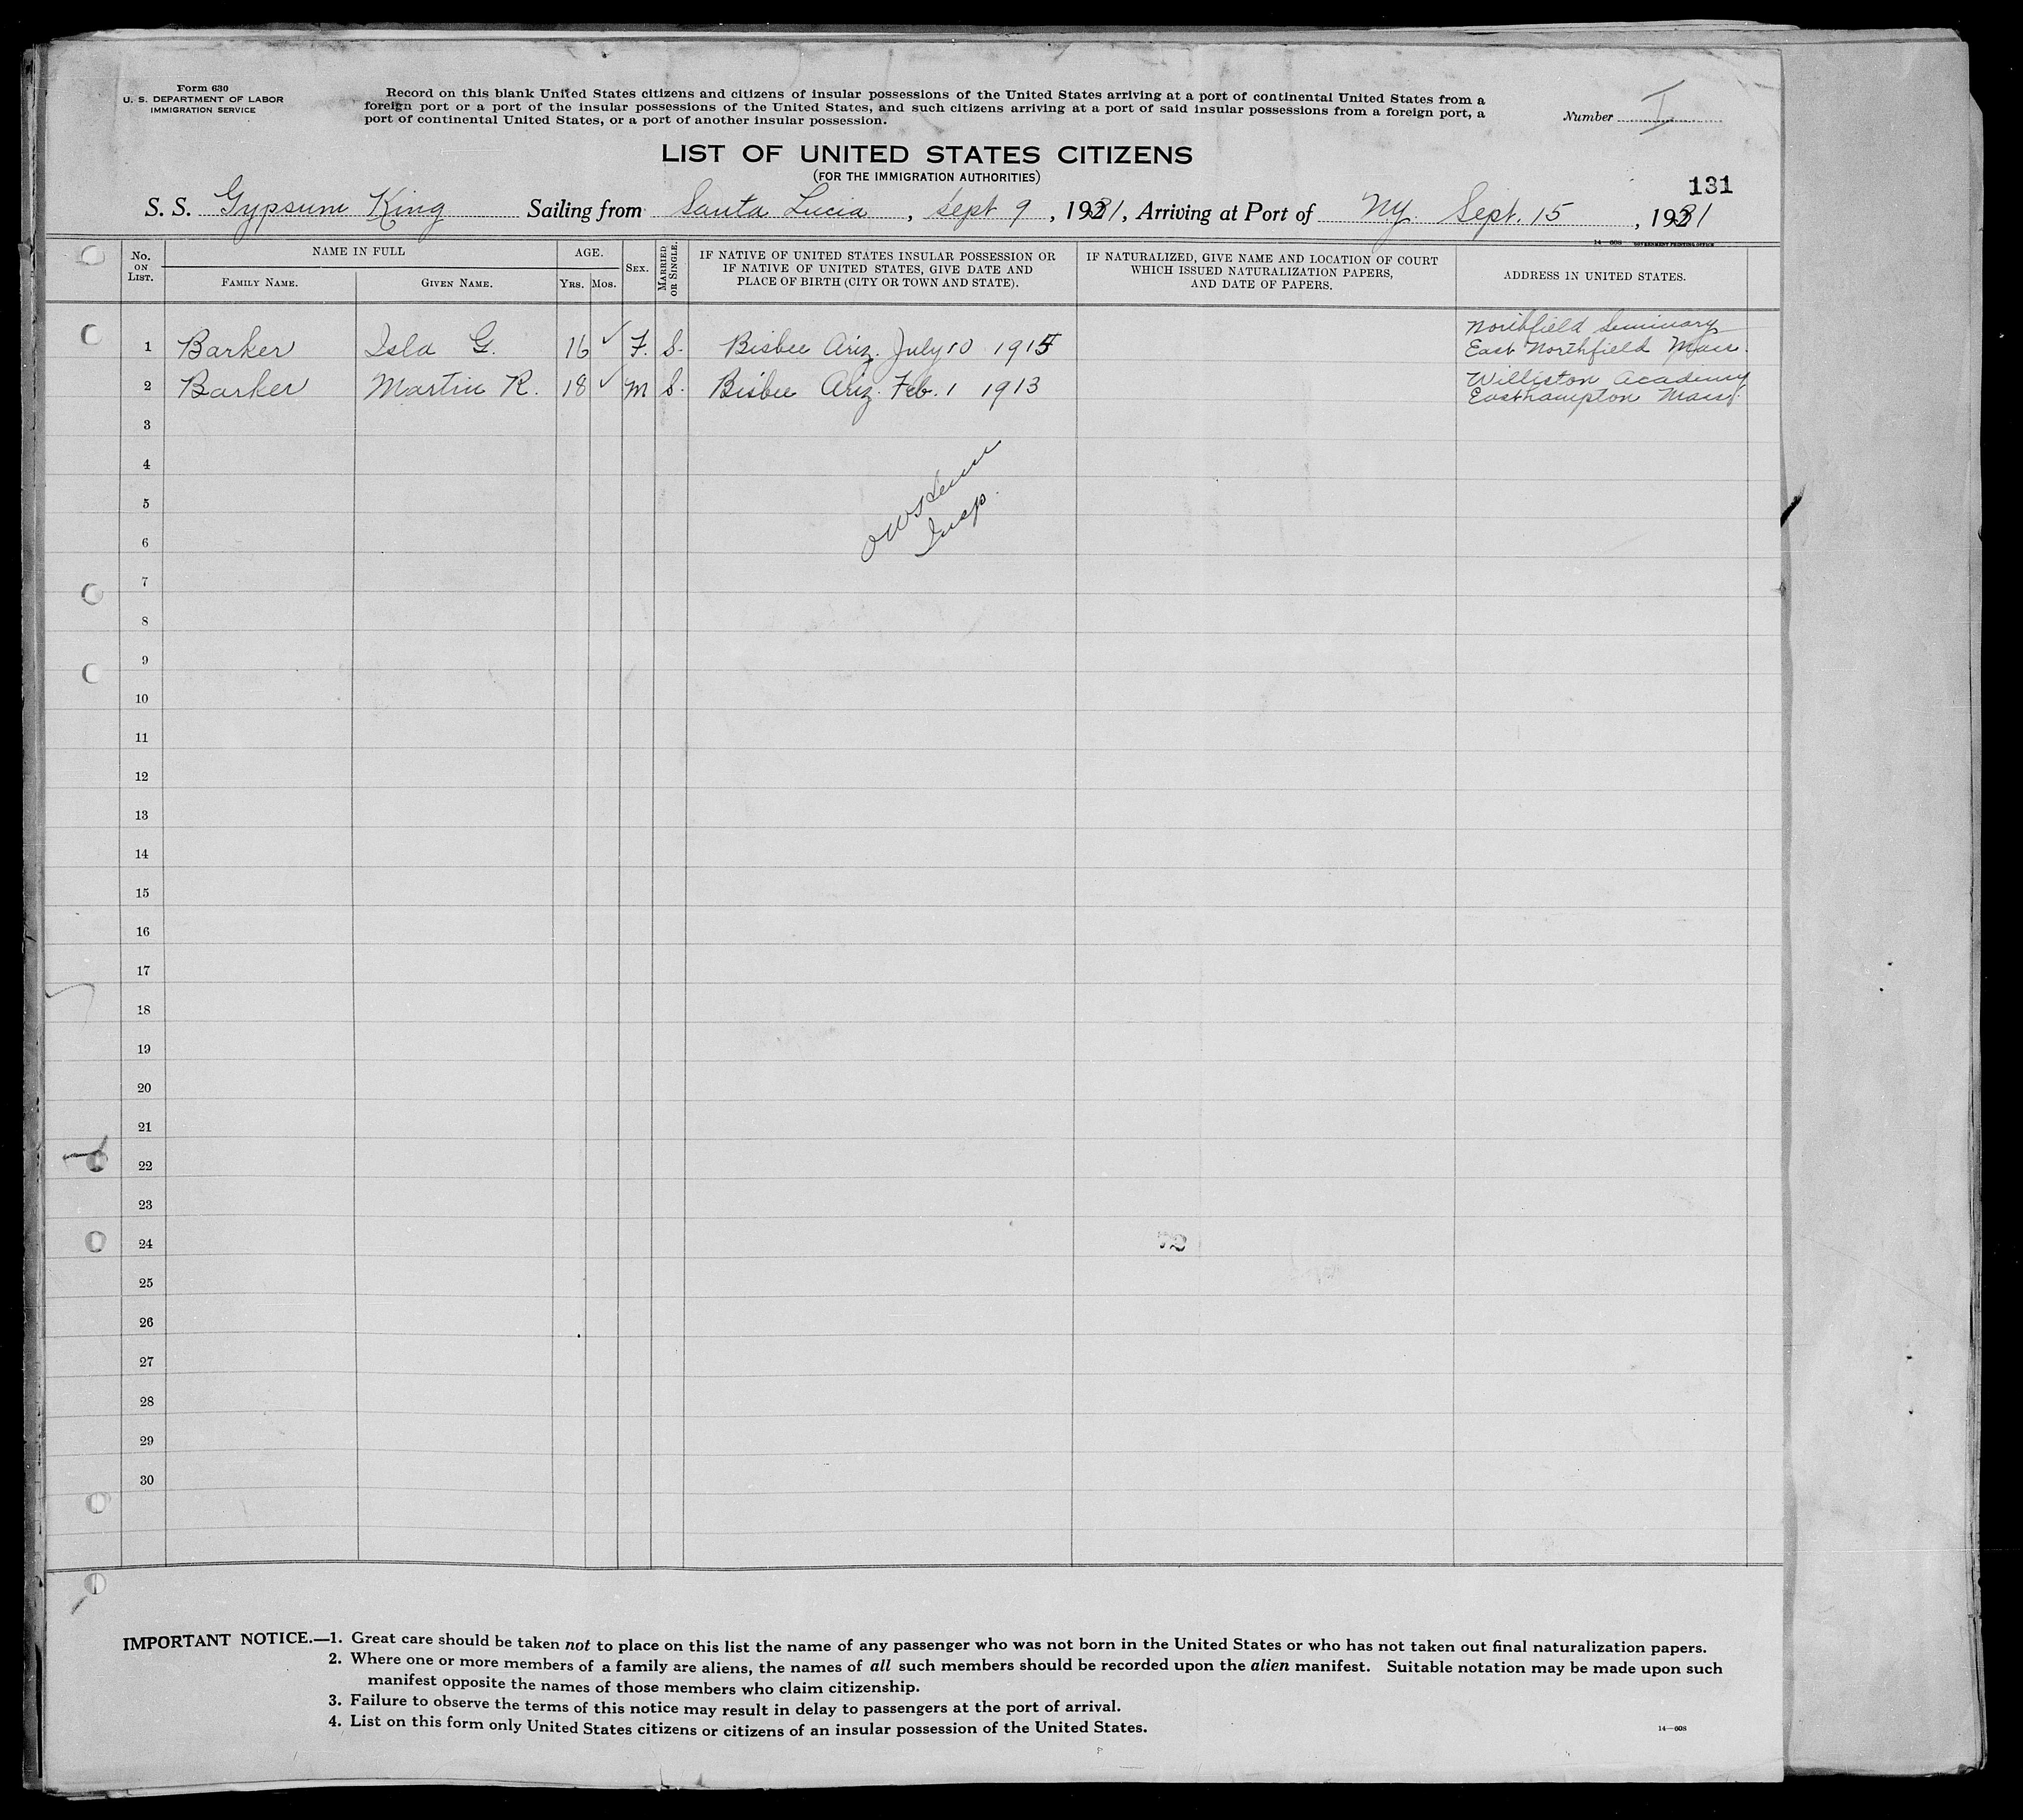 Form 630
U. S. DEPARTMENT OF LABOR
IMMIGRATION SERVICE
Record on this blank United States citizens and citizens of insular possessions of the United States arriving at a port of continental United States from a
foreign port or a port of the insular possessions of the United States, and such citizens arriving at a port of said insular possessions from a foreign port, a
port of continental United States, or a port of another insular possession.
Number I
LIST OF UNITED STATES CITIZENS
(FOR THE IMMIGRATION AUTHORITIES)
131
S. S. Gypsum King Sailing from Santa Lucia, Sept 9, 1931, Arriving at Port of NY. Sept. 15, 1931
14—608 GOVERNMENT PRINTING OFFICE
No. ON LIST.
NAME IN FULL
FAMILY NAME.
GIVEN NAME.
AGE.
YRS.
MOS.
SEX.
MARRIED OR SINGLE.
IF NATIVE OF UNITED STATES INSULAR POSSESSION OR
IF NATIVE OF UNITED STATES, GIVE DATE AND
PLACE OF BIRTH (CITY OR TOWN AND STATE).
IF NATURALIZED, GIVE NAME AND LOCATION OF COURT
WHICH ISSUED NATURALIZATION PAPERS,
AND DATE OF PAPERS.
ADDRESS IN UNITED STATES.
Northfield Seminary
1 Barker Isla G. 16 ✓ F. S. Bisbee Ariz. July 10 1915 East Northfield Mass.
Williston Academy
2 Barker Martin R. 18 ✓ M S. Bisbee Ariz. Feb. 1 1913 Easthampton Mass.
3
4
5
Insp.
6
7
8
9
10
11
12
13
14
15
16
17
18
19
20
21
22
23
24
25
26
27
28
29
30
IMPORTANT NOTICE.—1. Great care should be taken not to place on this list the name of any passenger who was not born in the United States or who has not taken out final naturalization papers.
2. Where one or more members of a family are aliens, the names of all such members should be recorded upon the alien manifest. Suitable notation may be made upon such
manifest opposite the names of those members who claim citizenship.
3. Failure to observe the terms of this notice may result in delay to passengers at the port of arrival.
4. List on this form only United States citizens or citizens of an insular possession of the United States.
14—608